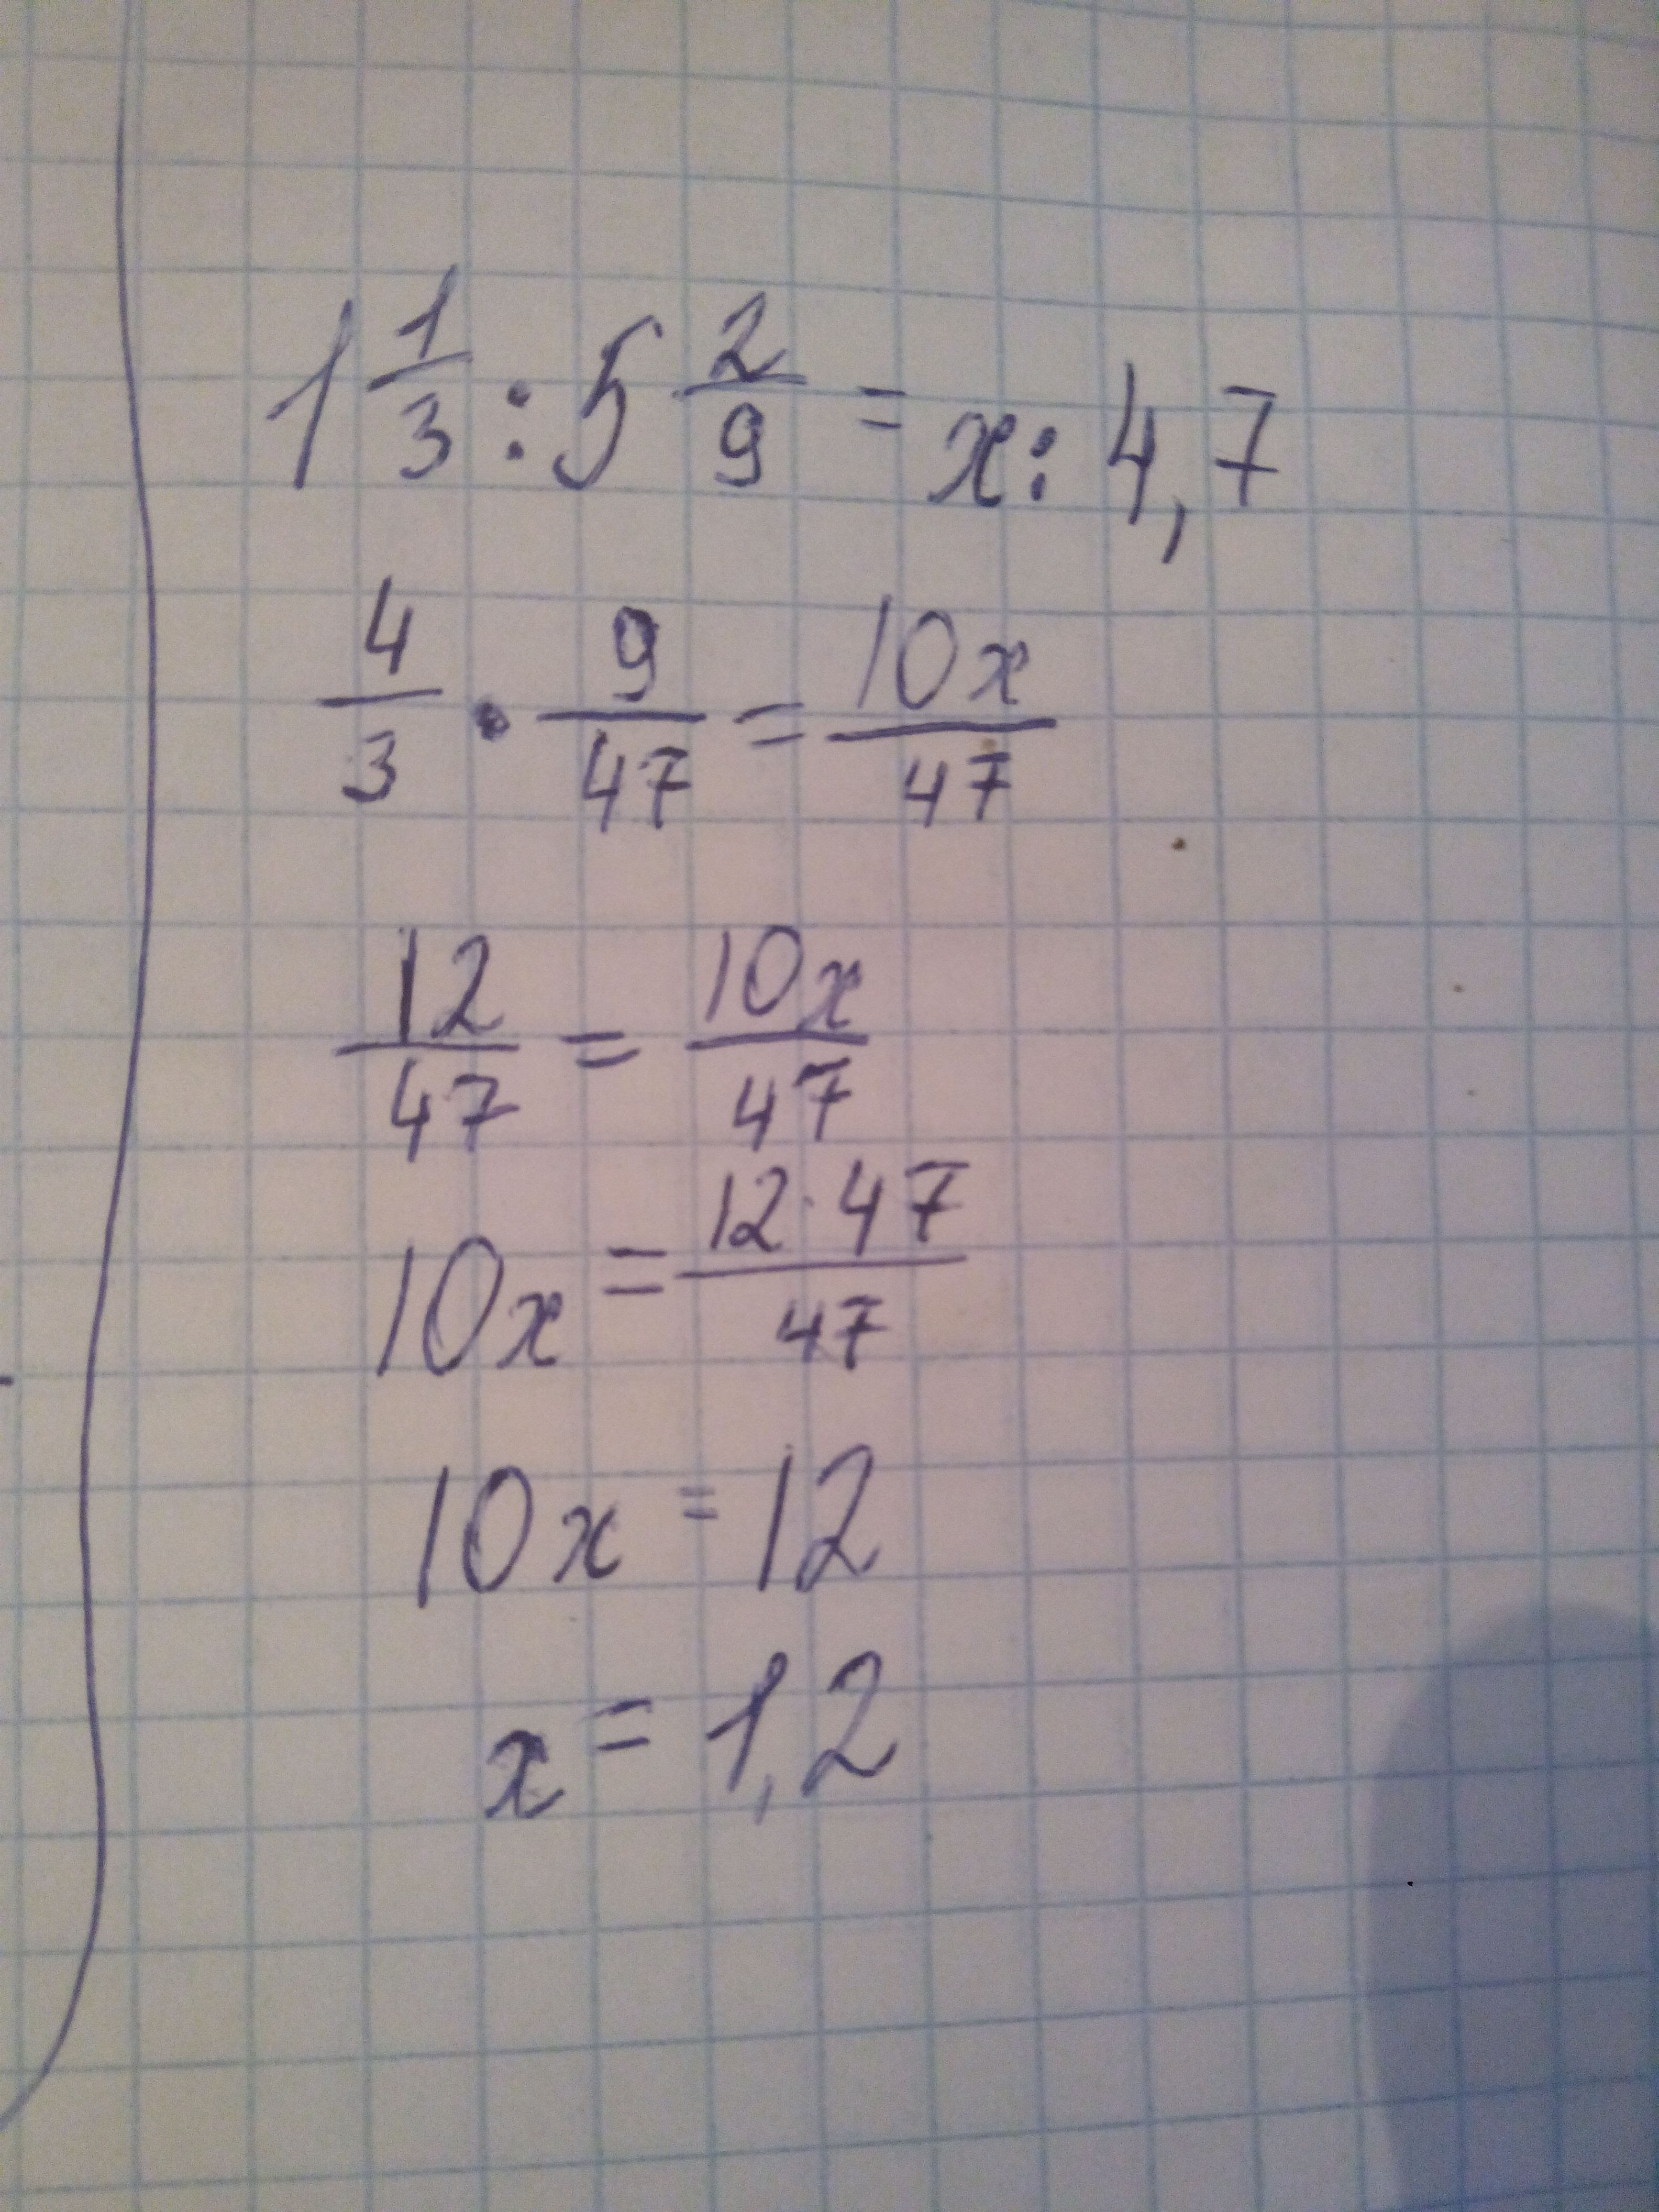 1 1/3 : 5 2/9 = x : 4,7
4/3 · 9/47 = 10x/47
12/47 = 10x/47
10x = 12·47/47
10x = 12
x = 1,2